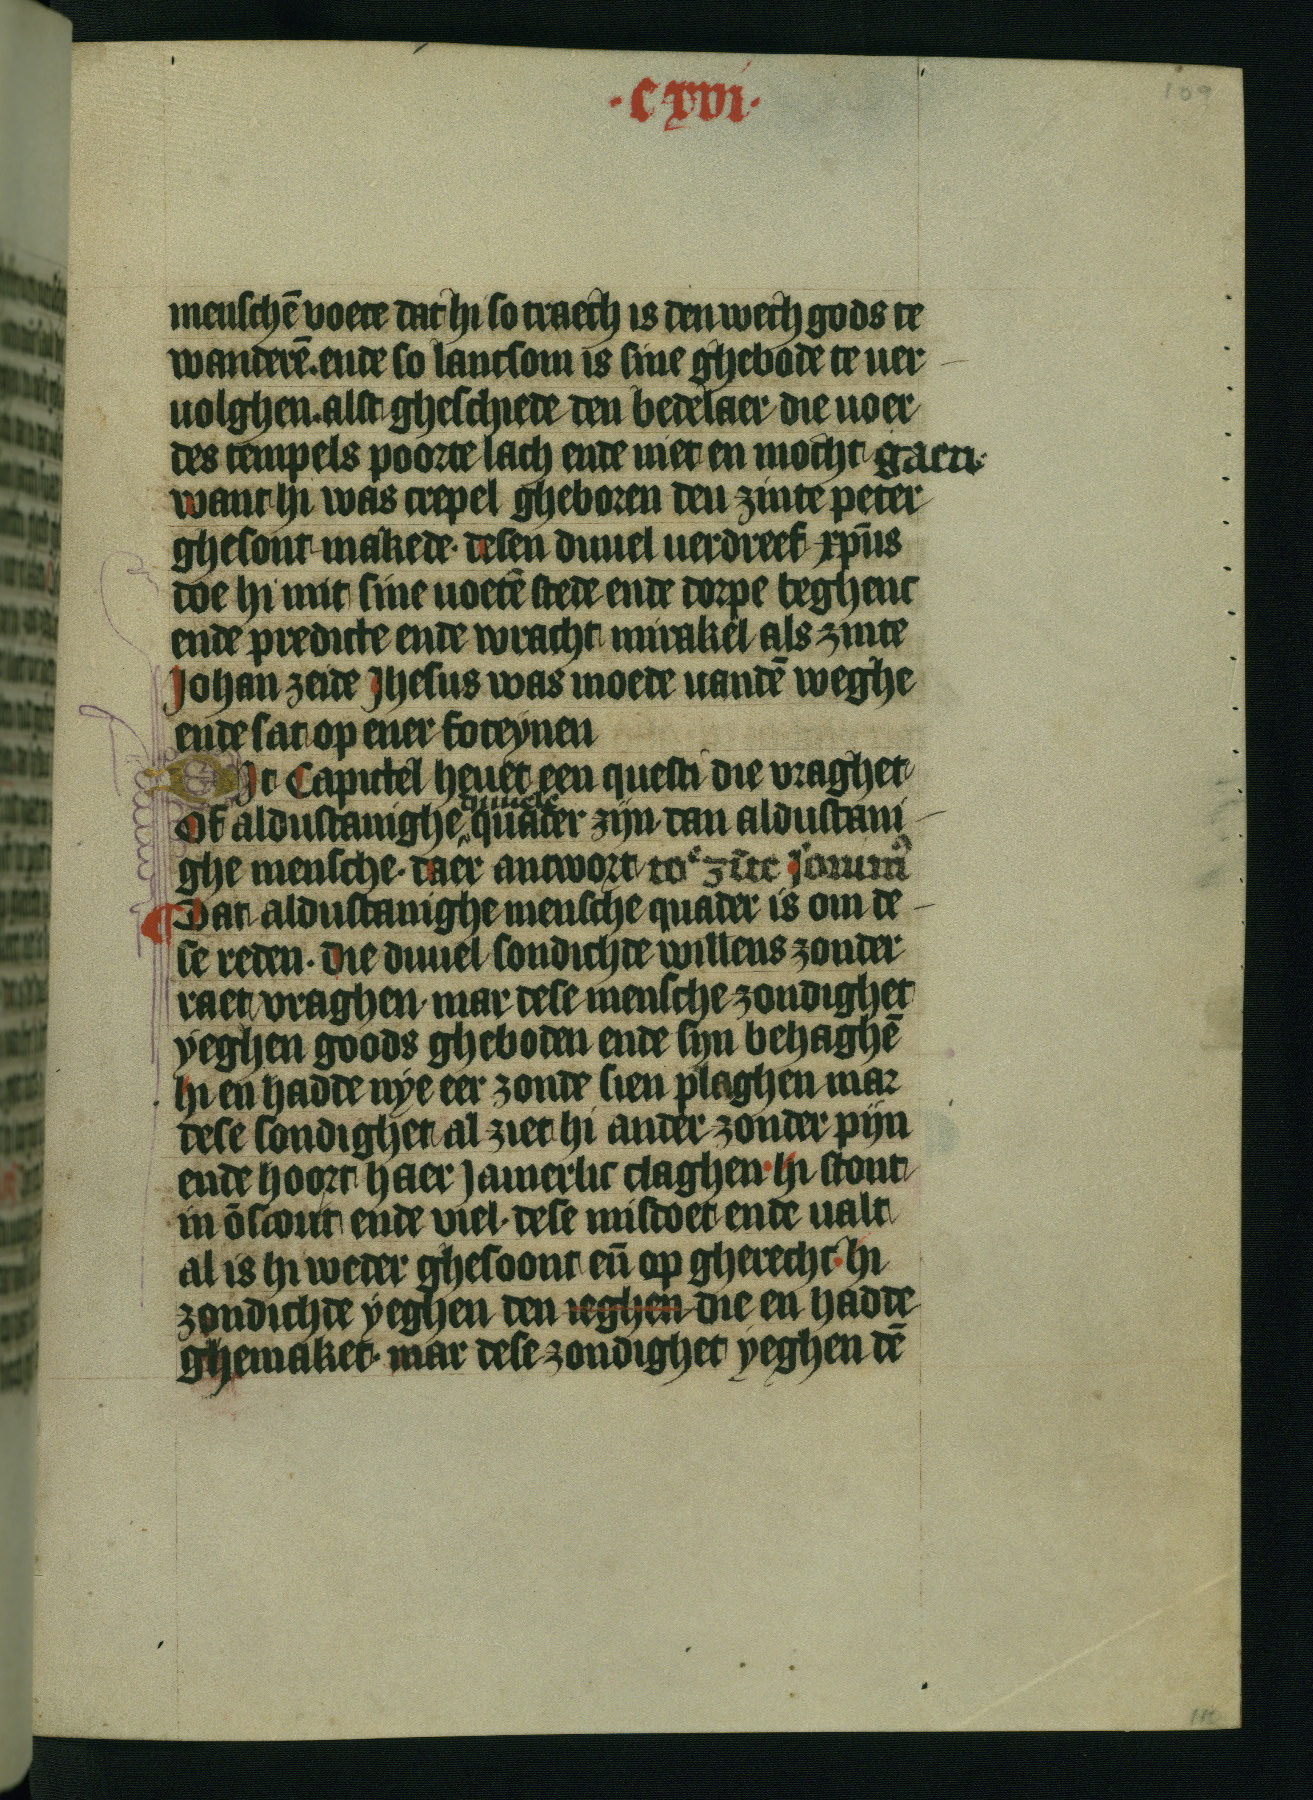 ·cxvi·
109
menschē voete dat hi so traech is den wech gods te
wanderē. ende so lancsom is sine ghebode te uer
uolghen. alst gheschiede den bedelaer die uoer
des tempels poorte lach ende niet en mocht gaen.
want hi was crepel gheboren den zinte peter
ghesont makede. desen duuel uerdreef xp̄us
doe hi mit sine uoetē stede ende dorpe beghenc
ende predicte ende wracht mirakel als zinte
Johan zeide Jhesus was moede uandē weghe
ende sat op ener foteynen
Dit Capittel heuet een questi die vraghet
duuele
Of aldustanighe quader zijn dan aldustani
ghe mensche. daer antwort to
Dat aldustanighe mensche quader is om de
se reden. die duuel sondichde willens zonder
raet vraghen. mar dese mensche zondighet
yeghen goods gheboden ende syn behaghē
hi en hadde nye eer zonde sien plaghen mar
dese sondighet al ziet hi ander zonder pijn
ende hoort haer Jamerlic claghen. hi stont
in ōscout ende viel. dese misdoet ende ualt
al is hi weder ghesoont en̄ op gherecht. hi
zondichde yeghen den ieghen die en hadde
ghemaket. mar dese zondighet yeghen dē